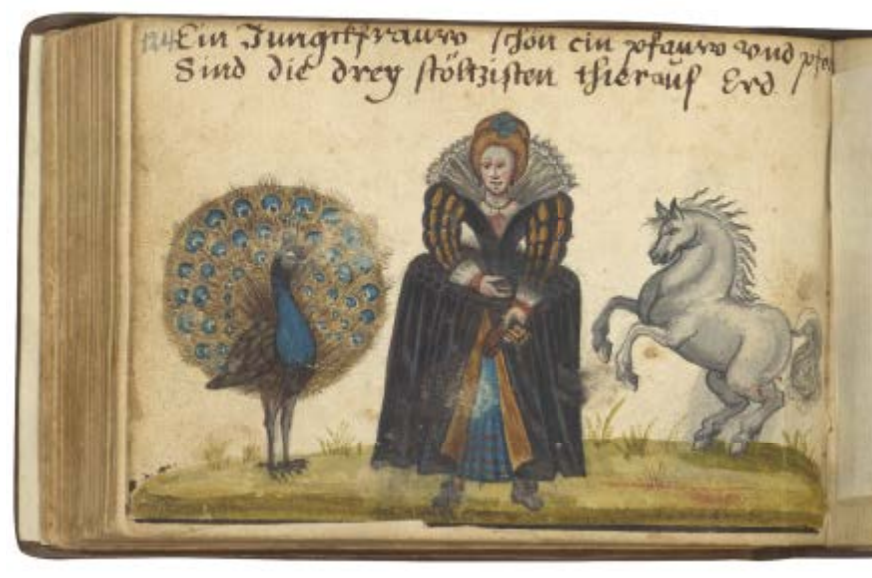 124 Ein Jungckfrauw schön ein pfauw vnd pfer
Sind die drey stöltzisten thier auf Erd